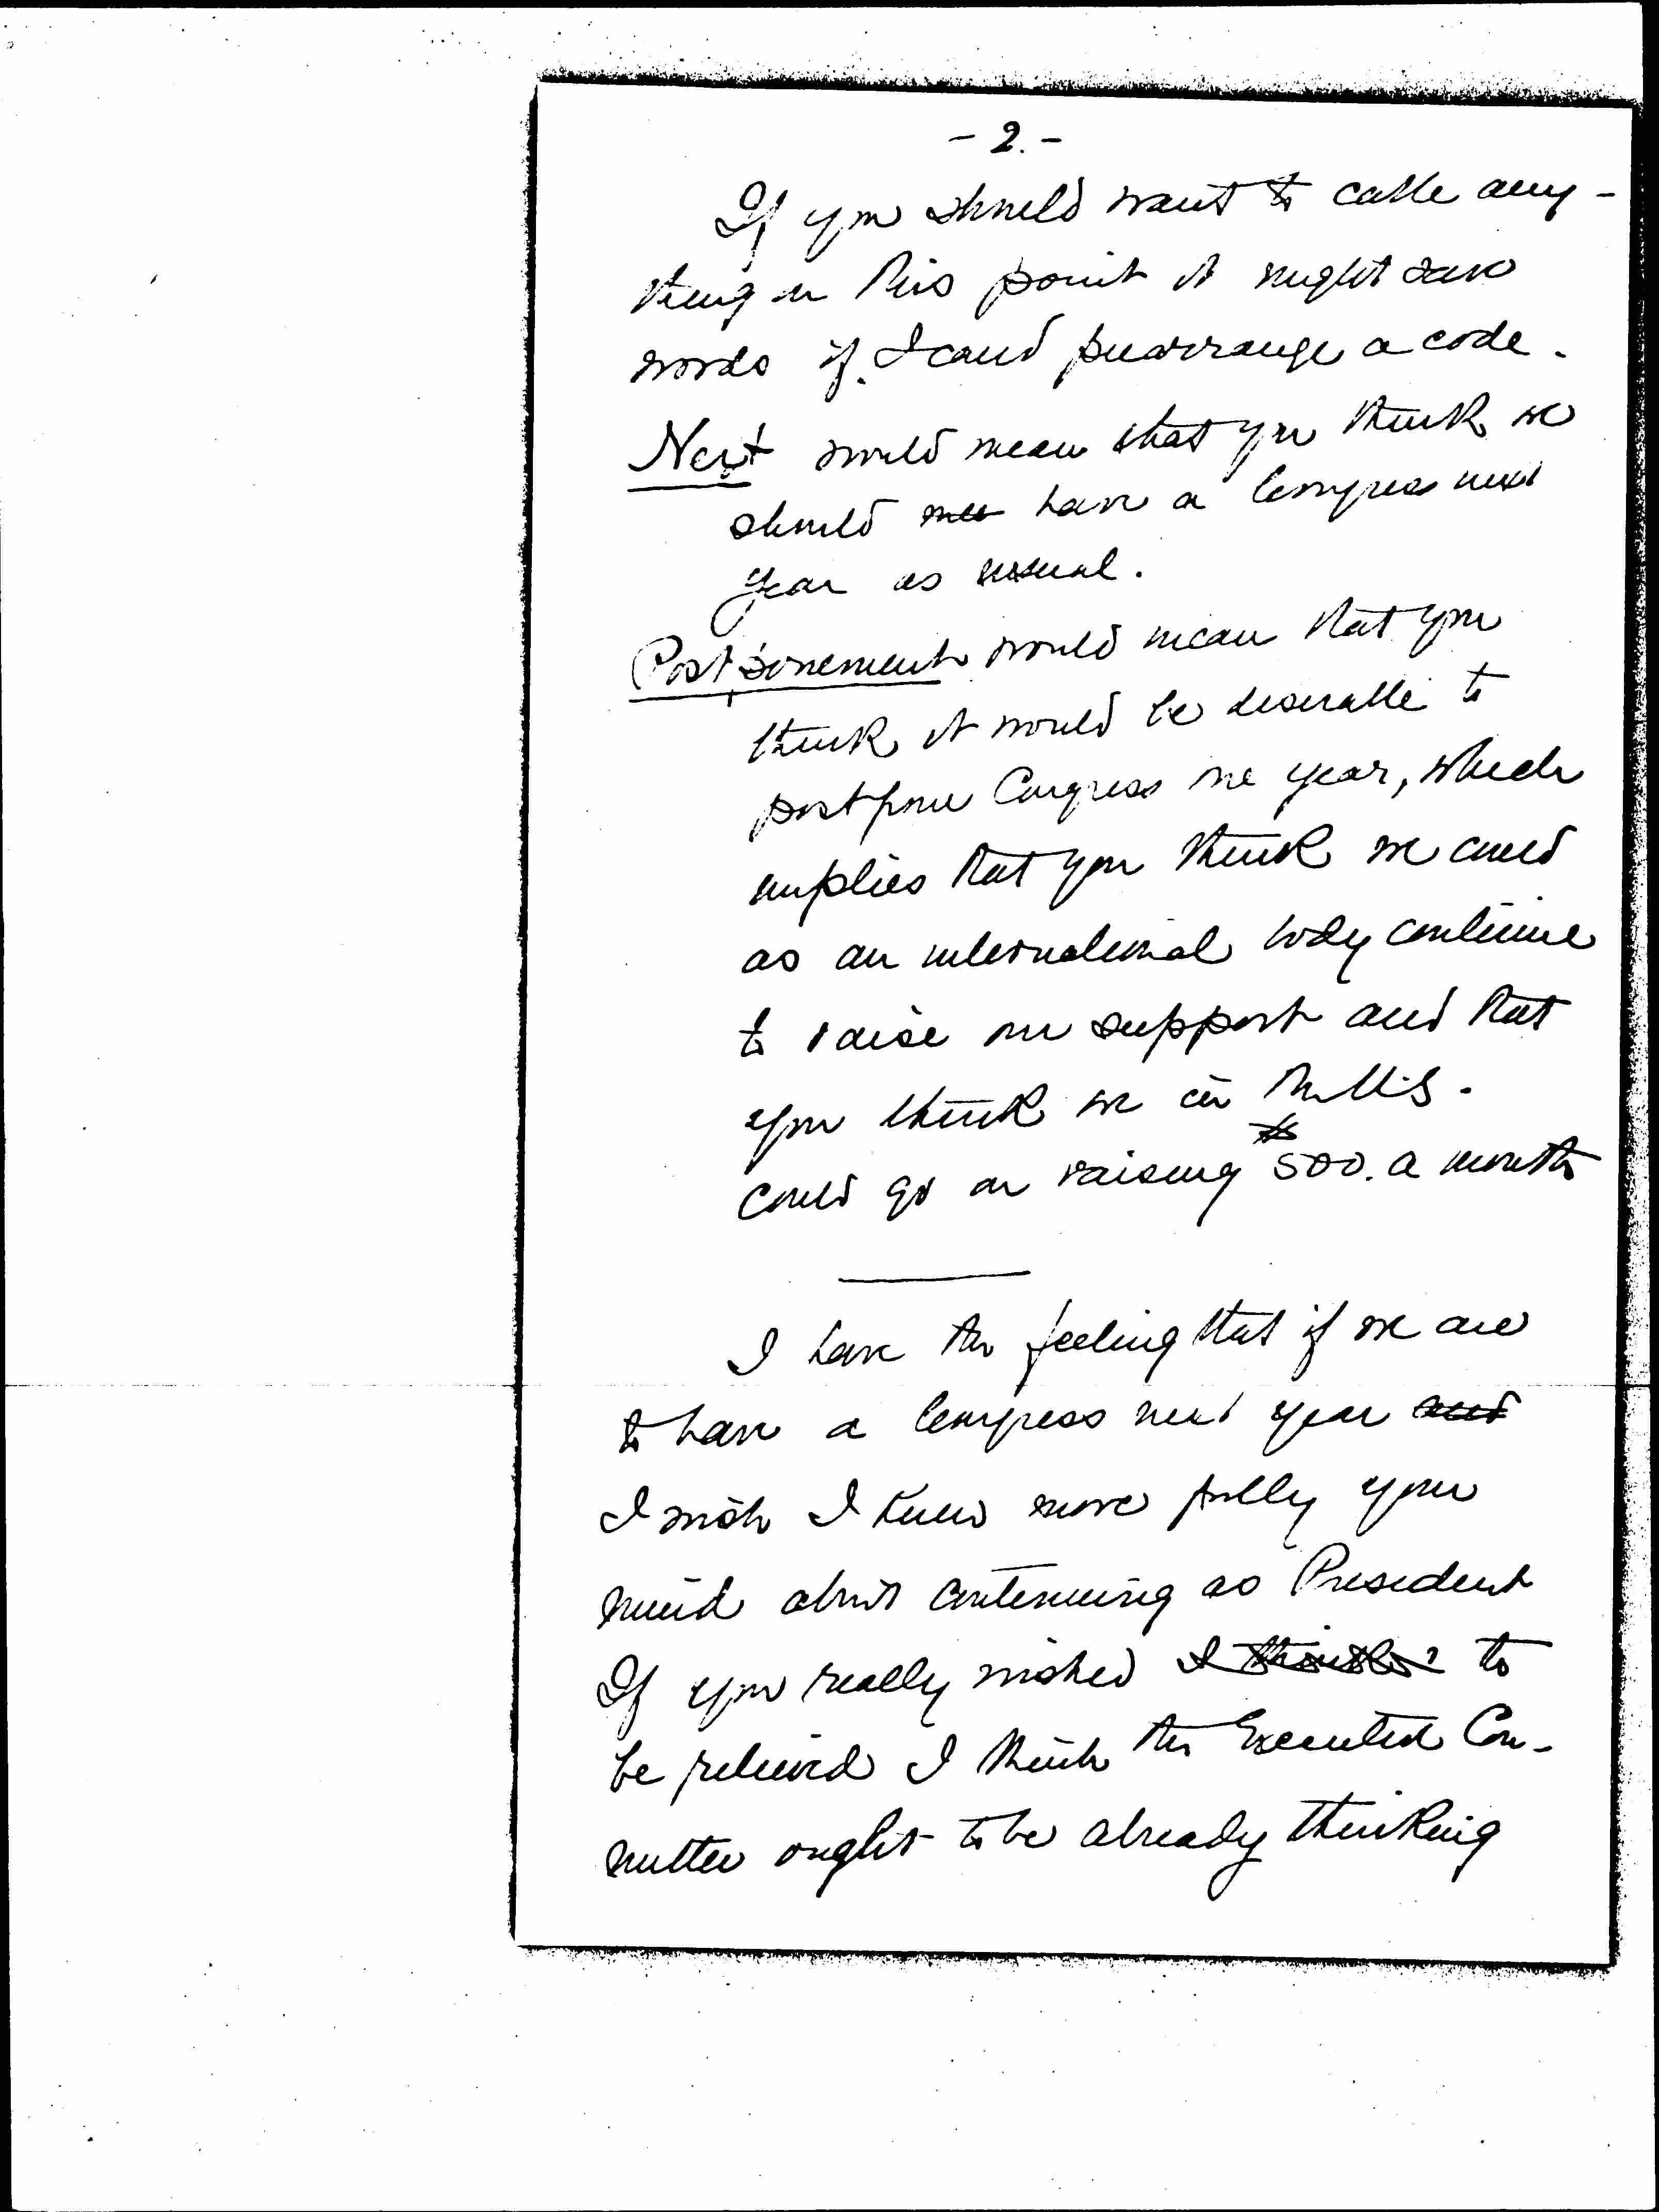 - 2. -
If you should want to cable any-
thing on this point it might save
words if I could prearrange a code.
Next would mean that you think we
should have a Congress next
year as usual.
Postponement would mean that you
think it would be desirable to
postpone Congress one year, which
implies that you think we could
as an international body continue
to raise our support and that
you think we in the U.S.
could go on raising $500. a month
I have the feeling that if we are
to have a Congress next year and
I wish I knew more fully your
mind about continuing as President
If you really wished I think to
be relieved I think the Executive Com-
mittee ought to be already thinking